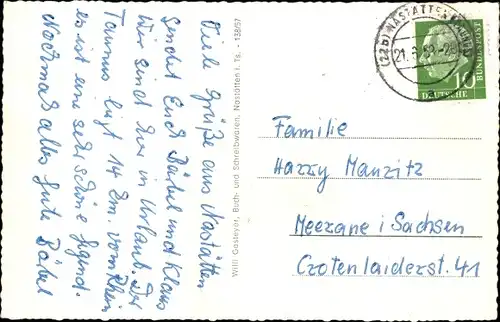 Viele Grüße aus Nastätten
sendet Euch Bärbel und Klaus
Wir sind hier in Urlaub. Der
Taunus liegt 14 km. vom Rhein
es ist eine sehr schöne Gegend.
Nochmals alles Gute Bärbel
Willi Gasteyer, Buch- und Schreibwaren, Nastätten i. Ts. - 138/57
(22b) NASTÄTTEN (TAUNUS)
21. 6. 58
a
10
DEUTSCHE
BUNDESPOST
Familie
Harry Manzitz
Meerane i Sachsen
Crotenlaiderst. 41